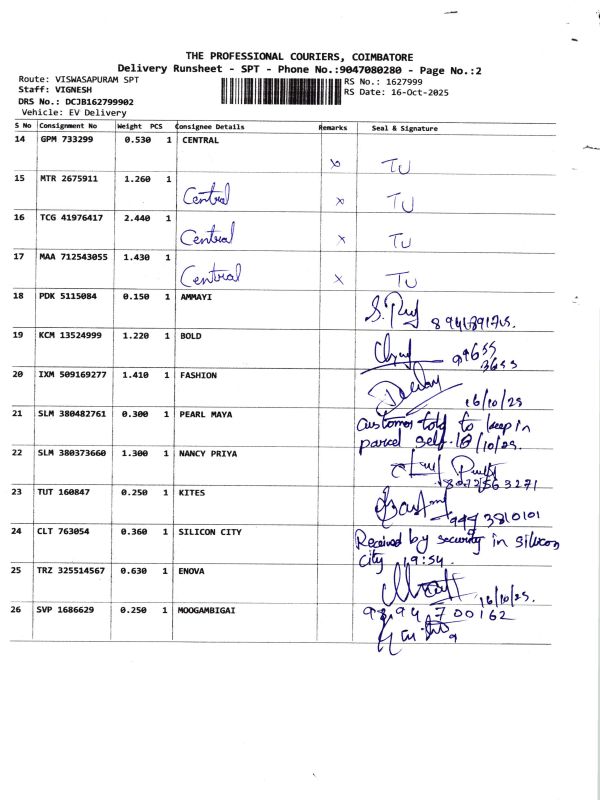 THE PROFESSIONAL COURIERS, COIMBATORE
Delivery Runsheet - SPT - Phone No.:9047080280 - Page No.:2
Route: VISWASAPURAM SPT
RS No.: 1627999
Staff: VIGNESH
RS Date: 16-Oct-2025
DRS No.: DCJB162799902
Vehicle: EV Delivery
S No Consignment No Weight PCS Consignee Details Remarks Seal & Signature
14 GPM 733299 0.530 1 CENTRAL
x TU
15 MTR 2675911 1.260 1
Central x TU
16 TCG 41976417 2.440 1
Central x TU
17 MAA 712543055 1.430 1
Central x TU
18 PDK 5115084 0.150 1 AMMAYI
19 KCM 13524999 1.220 1 BOLD
99655
3653
20 IXM 509169277 1.410 1 FASHION
16/10/25
21 SLM 380482761 0.300 1 PEARL MAYA
Customer told to keep in
parcel self. 16/10/25.
22 SLM 380373660 1.300 1 NANCY PRIYA
8072563271
23 TUT 160847 0.250 1 KITES
9993810101
24 CLT 763054 0.360 1 SILICON CITY
Received by security in silicon
city 19:54.
25 TRZ 325514567 0.630 1 ENOVA
16/10/25.
26 SVP 1686629 0.250 1 MOOGAMBIGAI
9894700162